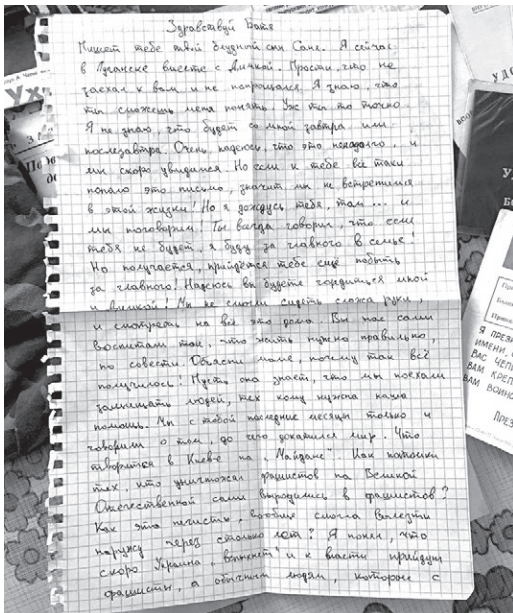 Здравствуй Батя
Пишет тебе твой блудный сын Саня. Я сейчас
в Луганске вместе с Димкой. Прости, что не
заехал к вам, и не попрощался. Я знаю, что
ты сможешь меня понять. Уж ты то точно.
Я не знаю, что будет со мной завтра или
послезавтра. Очень надеюсь, что это ненадолго, и
мы скоро увидимся. Но если к тебе всё таки
попало это письмо, значит мы не встретимся
в этой жизни! Но я дождусь тебя, там... и
мы поговорим! Ты всегда говорил, что если
тебя не будет, я буду за главного в семье!
Но получается, прийдётся тебе ещё побыть
за главного. Надеюсь вы будете гордиться мной
и Димкой! Мы не смогли сидеть сложа руки,
и смотреть на всё это дома. Вы нас сами
воспитали так, что жить нужно правильно,
по совести. Объясни маме, почему так всё
получилось! Пусть она знает, что мы поехали
защищать людей, тех кому нужна наша
помощь. Мы с тобой последние месяцы только и
говорили о том, до чего докатился мир. Что
творится в Киеве на "Майдане". Как потомки
тех, кто уничтожал фашистов на Великой
Отечественной сами выродились в фашистов?
Как эта нечисть, вообще смогла вылезти
наружу через столько лет? Я понял, что
скоро Украина "вспыхнет" и к власти прийдут
фашисты, а обычным людям, которые с
Я ПРЕЗИ
ИМЕНИ, С
ВАС ЧЕПИ
ВАМ КРЕП
ВАМ ВОИНС
ПРЕЗ